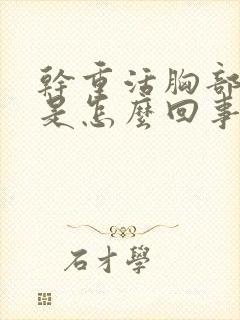 幹重活胸部
是怎麼回事
石才學